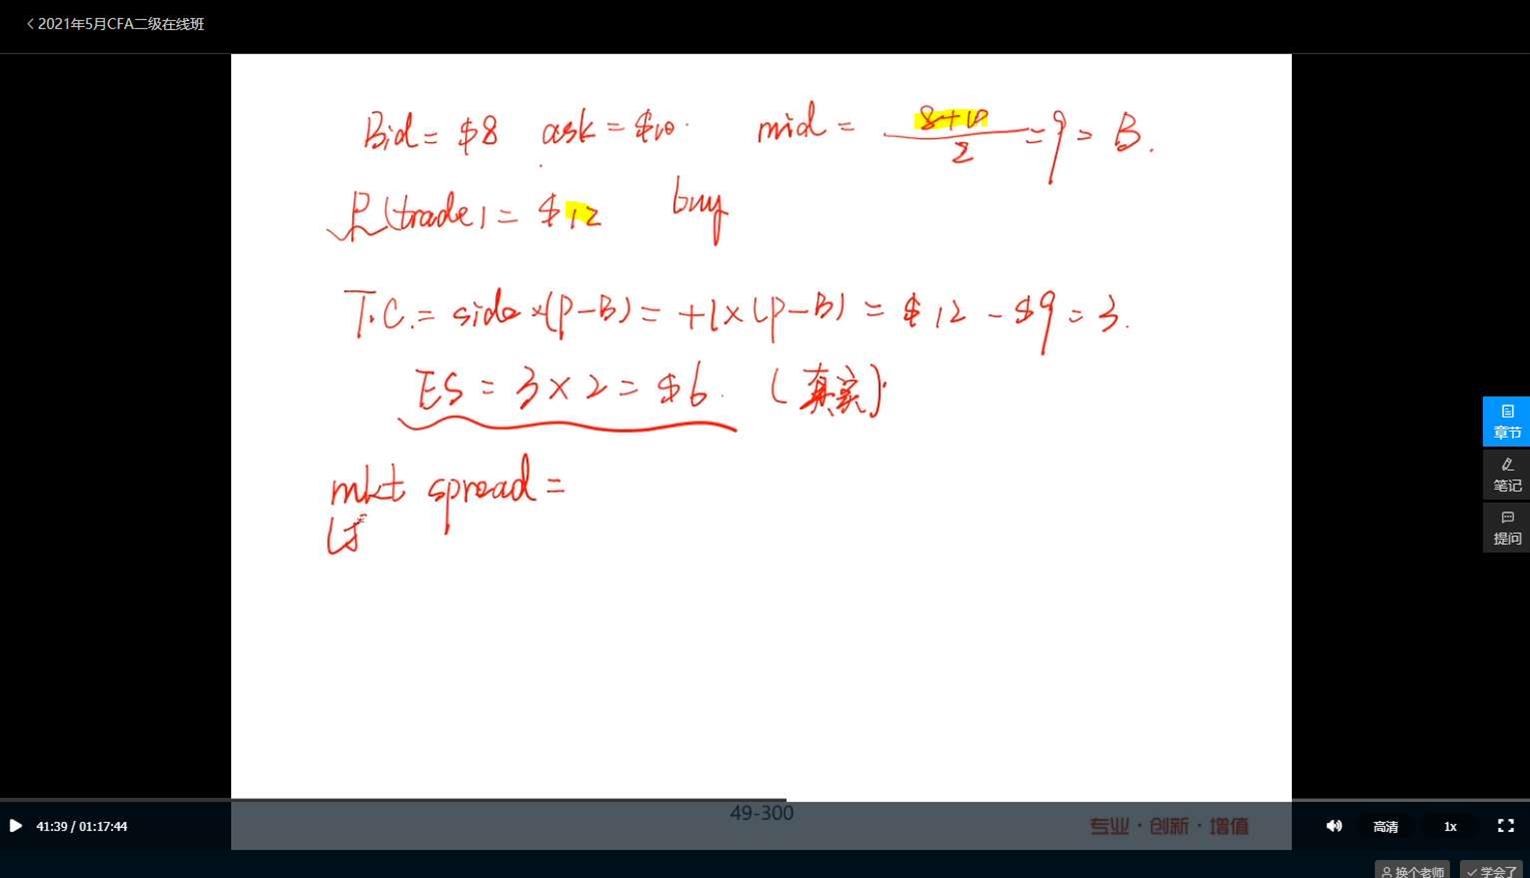 2021年5月CFA二级在线班
Bid = $8 ask = $10. mid = 8+10 / 2 = 9 = B.
P(trade) = $12 buy
T.C. = side × (P-B) = +1 × (P-B) = $12 - $9 = 3.
ES = 3 × 2 = $6. (真实)
mkt spread =
章节
笔记
提问
49-300
专业·创新·增值
41:39 / 01:17:44 高清 1x
换个老师 学会了